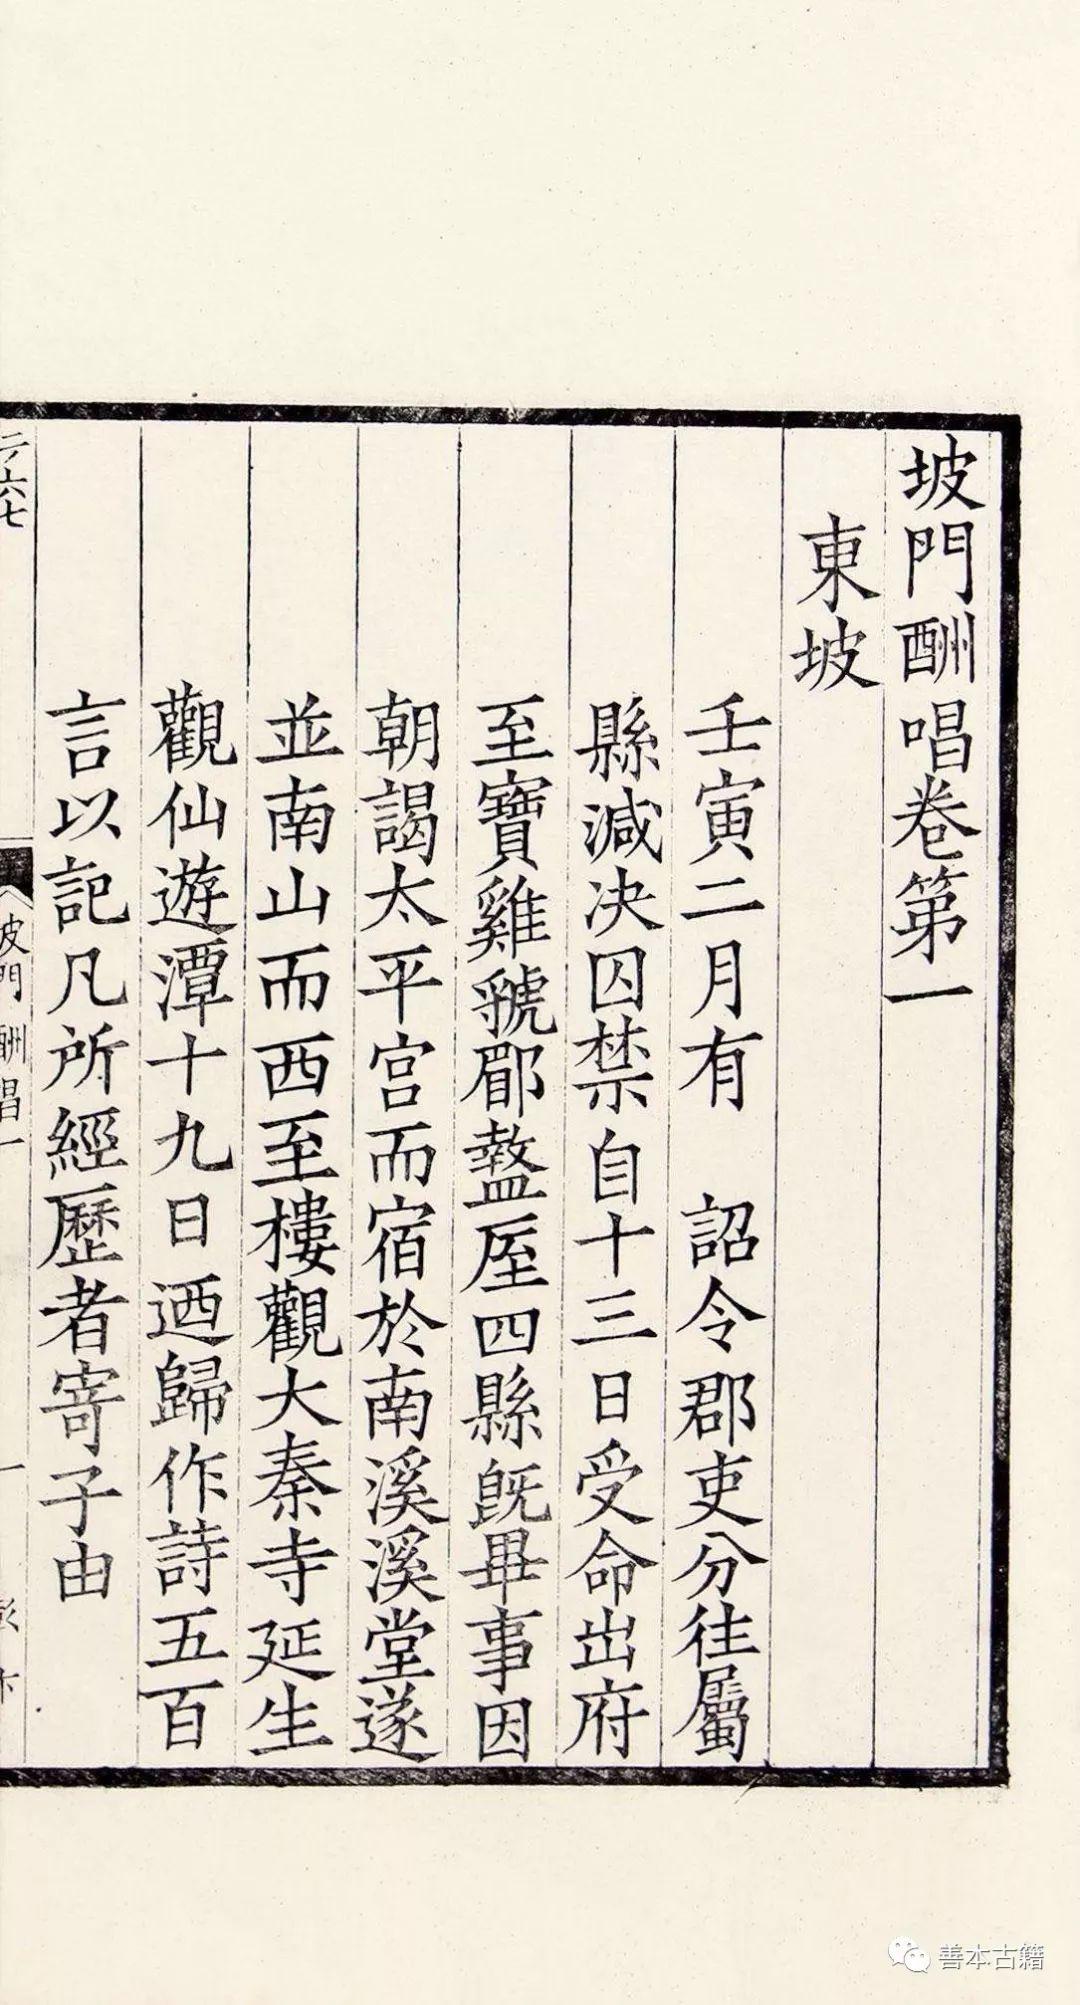 坡門酬唱卷第一
東坡
壬寅二月有 詔令郡吏分往屬
縣減决囚禁自十三日受命出府
至寶雞虢郿盩厔四縣旣畢事因
朝謁太平宫而宿於南溪溪堂遂
並南山而西至樓觀大秦寺延生
觀仙遊潭十九日迺歸作詩五百
言以記凡所經歷者寄子由
二百六七
坡門酬唱一
一
善本古籍